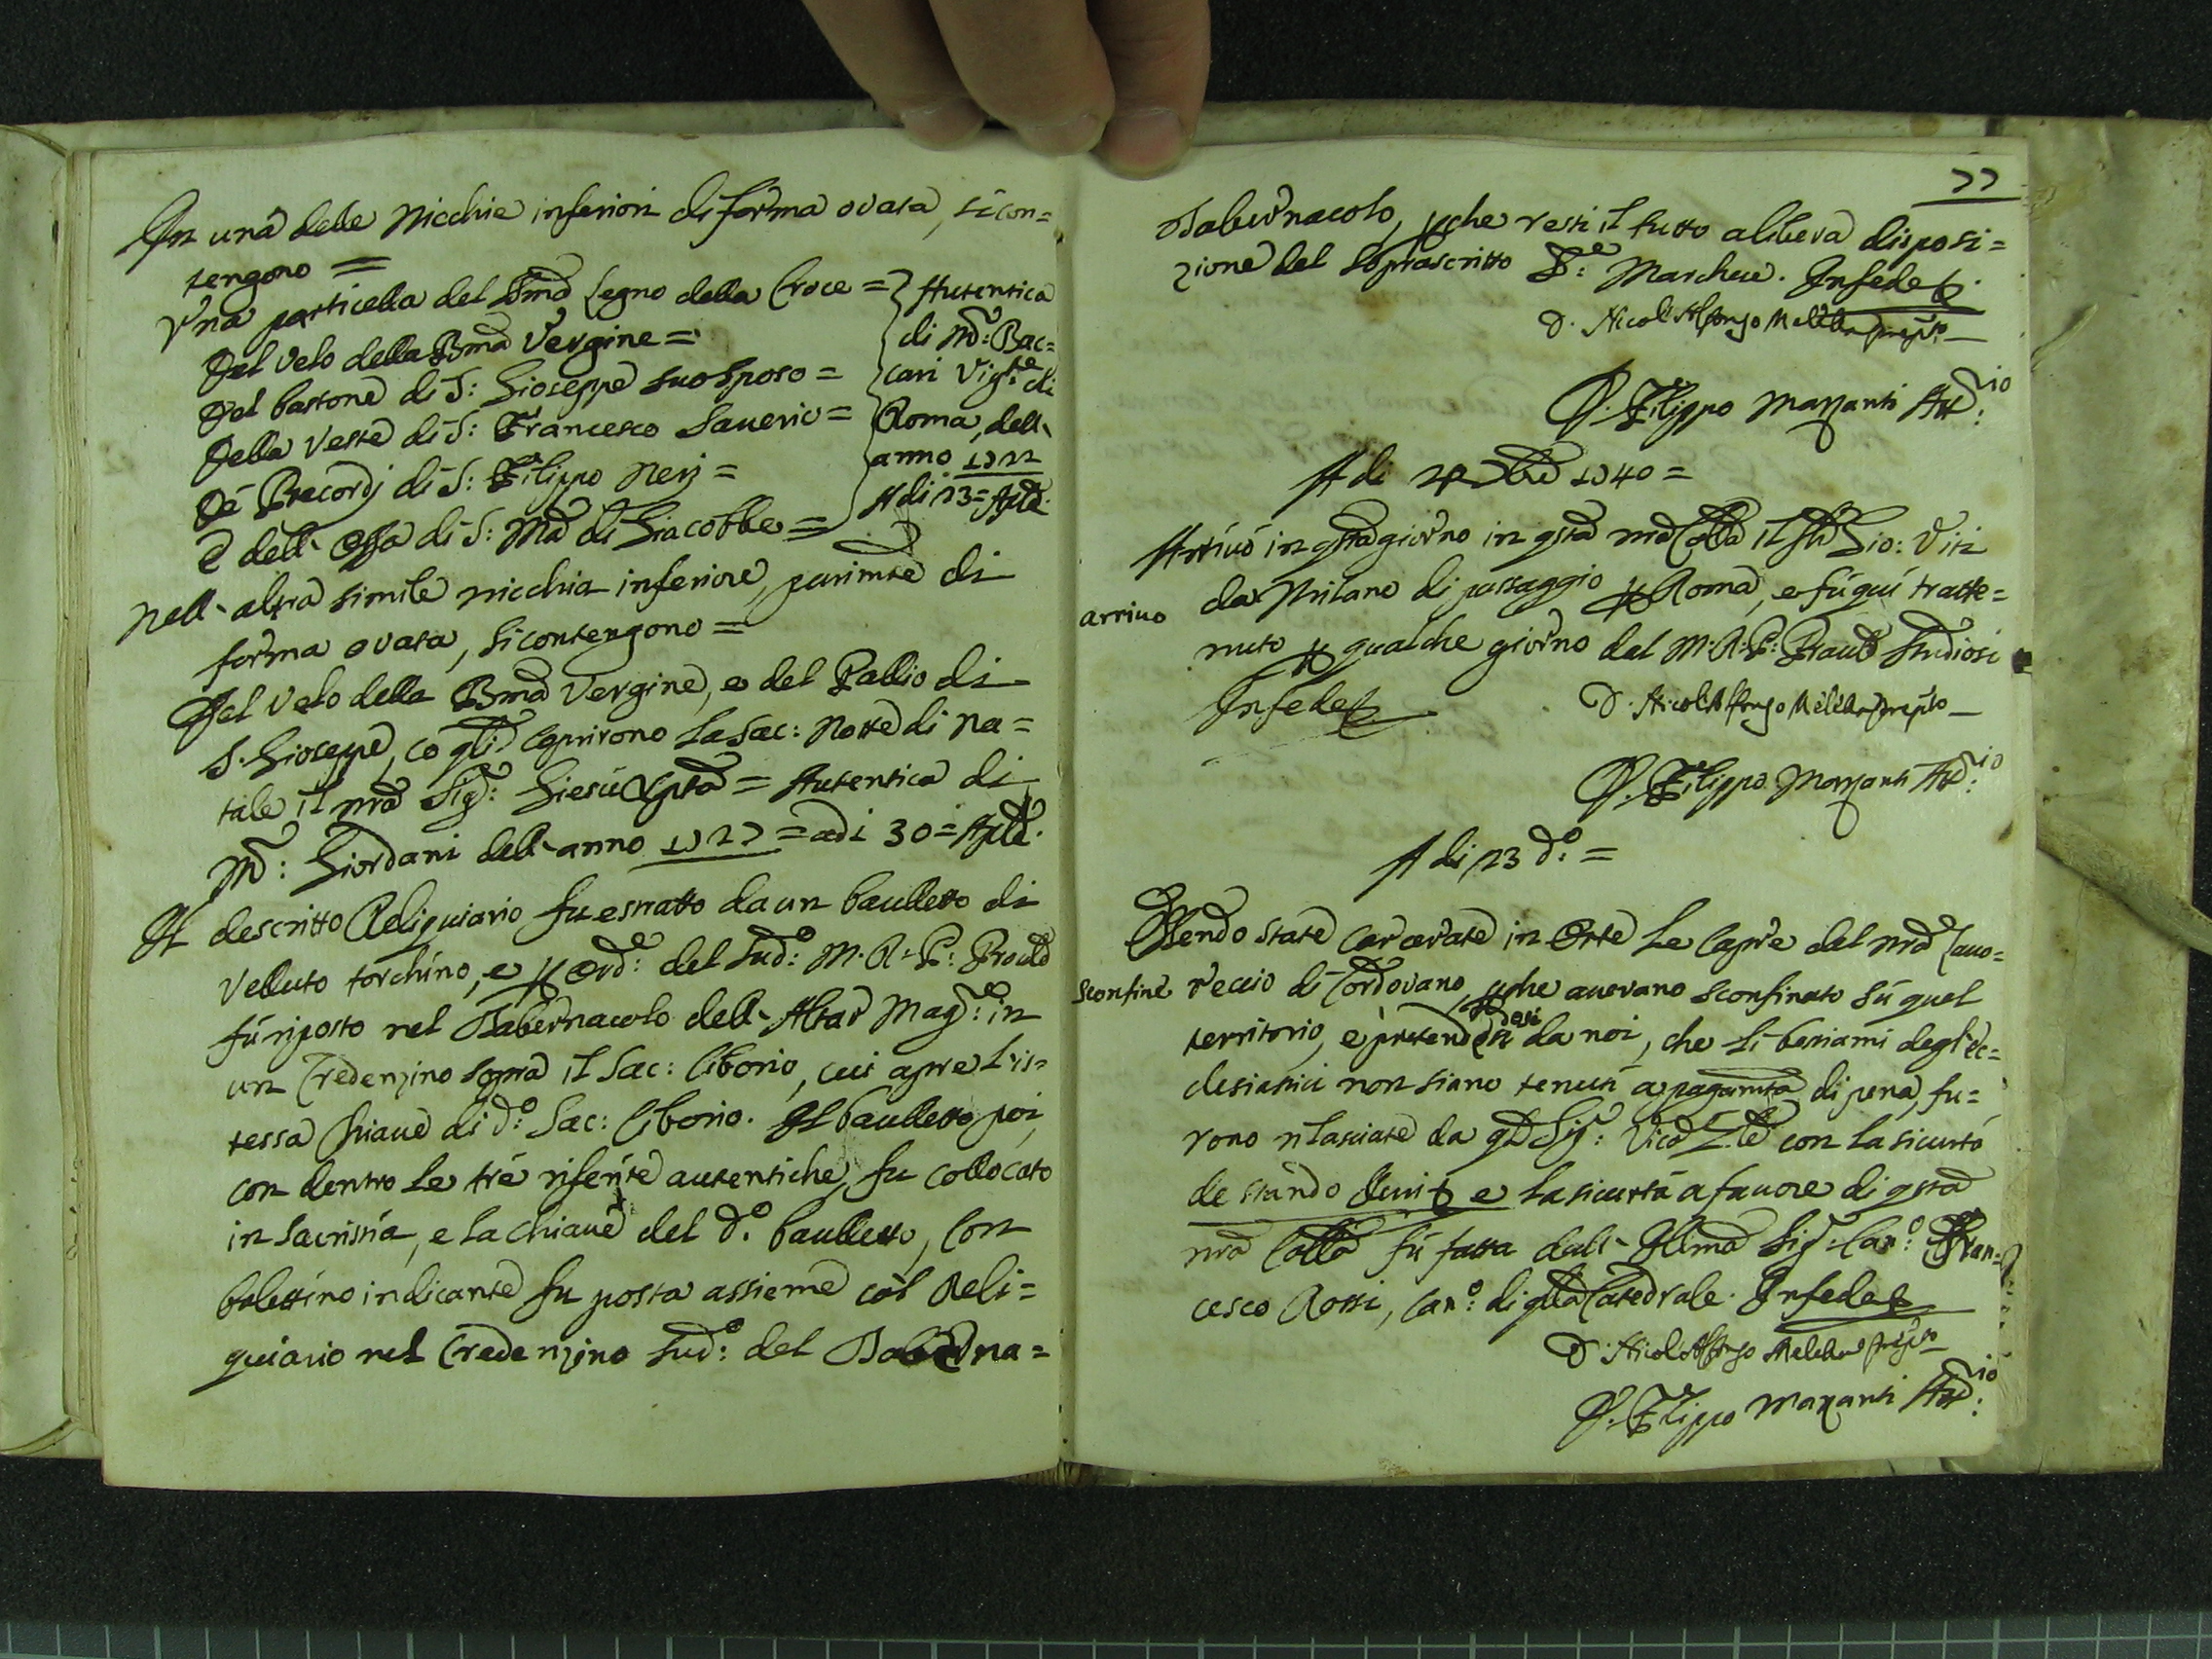 In una delle Nicchie inferiori di forma ovata, si con=
tengono =
Una particella del Smo Legno della Croce =
Del Velo della Bma Vergine =
Del bastone di S: Gioseppe suo Sposo =
Della Veste di S: Francesco Saverio =
De Precordj di S: Filippo Nerj =
E dell' Ossa di S: Ma di Giacobbe =
Autentica
di Md: Bac=
cari Vigte di
Roma, dell'
anno 1722
A di 23 = Aple.
Nell' altra simile nicchia inferiore, parimte di
forma ovata, si contengono =
Del Velo della Bma Vergine, e del Pallio di
S. Gioseppe, co qli coprirono la Sac: Notte di Na=
tale il nro Sigr: Giesù Xpto = Autentica di
Mr: Giordani dell' anno 1727 = adi 30 = Aple.
Il descritto Reliquiario fu estratto da un baulletto di
Velluto torchino, e p orde: del sudo: M. R. P: Prould
fù riposto nel Tabernacolo dell' Altar Mage: in
un Credenzino sopra il Sac: Ciborio, cui apre l' is=
tessa Chiave di do: Sac: Ciborio. Il baulletto poi,
con dentro le trè riferite autentiche, fu collocato
in Sacristia, e la chiave del do. baulletto, con
bolettino indicante fu posta assieme col Reli=
quiario nel Credenzino sudo: del Taberna=
77
Tabernacolo, pche resti il tutto a libera disposi=
zione del soprascritto Se: Marchese. In fede &.
D. Nicol' Alfonso Melelba prepto
D. Filippo Mazzanti Attrio:
A di 1740 =
Arrivò in qsto giorno in qsta nra Colla il Gio: Viti
arrivo
da Milano di passaggio p Roma, e fù quì tratte=
nuto p qualche giorno dal M. R. P: Prould Studiosi
In fede &
D. Nicol' Alfonso Melelba prepto
D. Filippo Mazzanti Attrio:
A di 23 do: =
Essendo state carcerate in Orte le Capre del nro Lavo=
Sconfine
reccio di Cordovano, pche avevano sconfinato sù quel
territorio, e pretendesi da noi, che li bestiami degl' Ec=
clesiastici non siano tenuti a pagamto di pena, fu=
rono rilasciate da ql Sigr: Vico Gle con la sicurtà
de stando Juri & e la sicurtà a favore di qsta
nra Colla fù fatta dall' Illmo Sigr: Cano: Fran=
cesco Rossi, Cano: di qlla Catedrale. In fede &
D. Nicol' Alfonso Melelba prepto
D. Filippo Mazzanti Attrio: